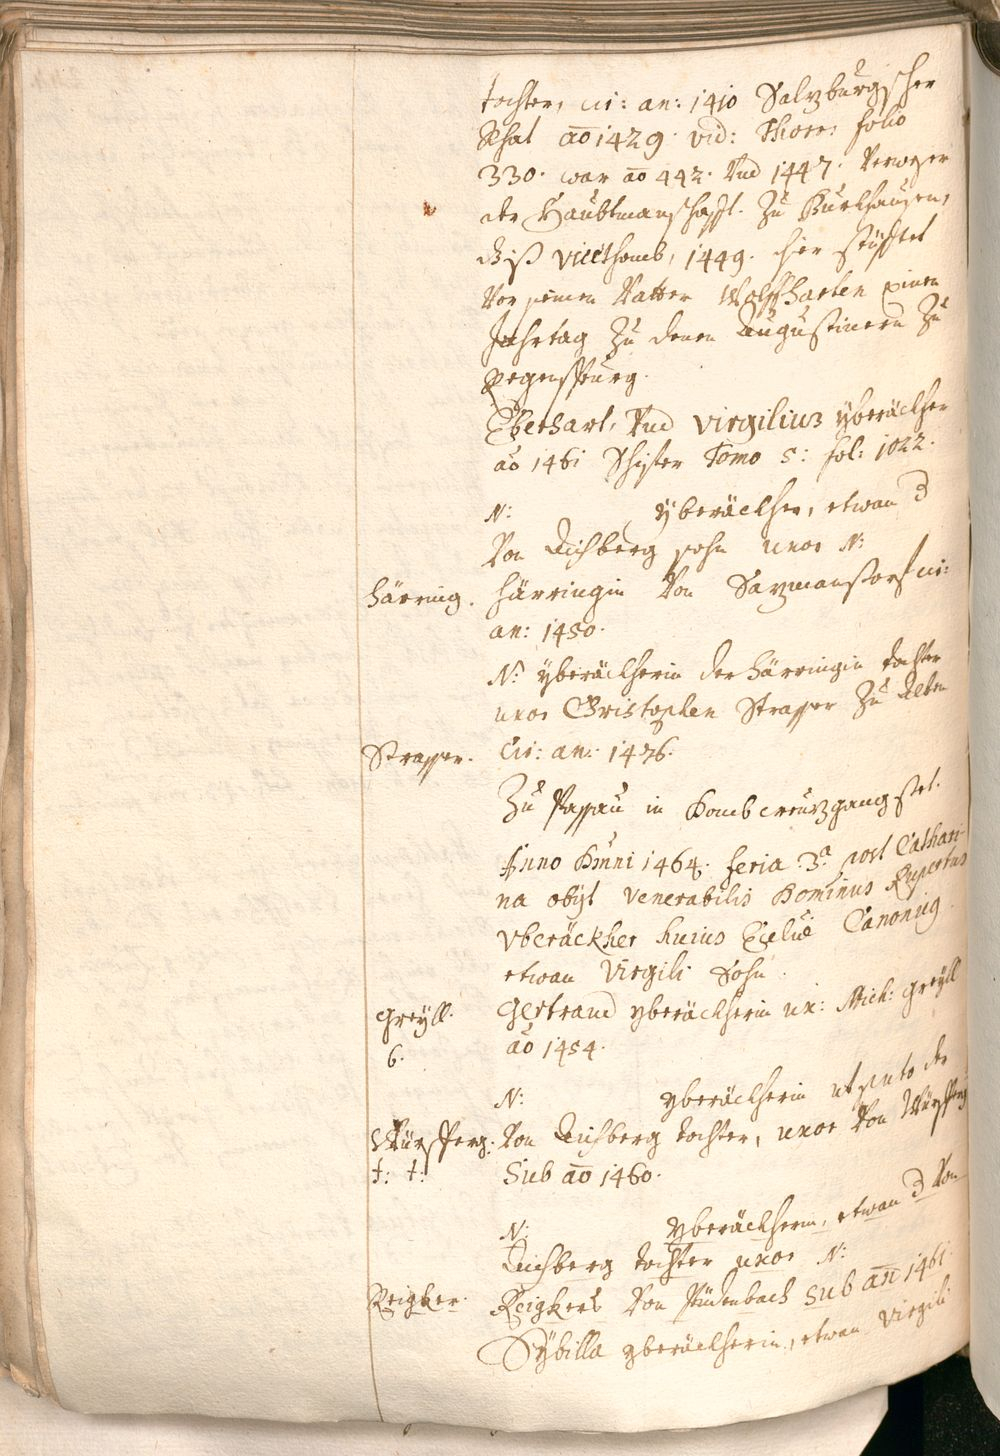 tochter, cir: an: 1410 Salzburgischer
Rhat ao 1429. vid: Thorr: folio
330. war ao 442. Und 1447. Verweser
der Haubtmanschafft. Zu Burkhausen,
diß vicethomb, 1449. hier stüfftet
Vor seinen Vatter Wolffharten einen
Jahrtag Zu denen Augustinern Zu
Regenspurg.
Eberhart, Und Virgilius yberäckher
ao 1461 Tomo 5: fol: 1022.
N: yberäckher, etwan d
Von Aichberg sohn uxor N:
härring. härringin Von Sazmanstorf cir:
an: 1450.
N: yberäckherin der härringin tochter
uxor Christophen Strasser Zu
Strasser. Cir: an: 1476.
Zu Passau in Domb creuzgang stet.
Anno Dmni 1464. feria 3a post Cathari-
na obyt venerabilis Dominus Rupertus
Vberäckher huius Canonicus
etwan Virgili Sohn.
greyll. Gertraud yberäckherin ux: Mich: greyll
6. ao 1454.
N: yberäckherin des
Würsperg: Von Aichberg tochter, uxor Von Würsperg
t: t: Sub ao 1460.
N: yberäckherin, etwan d Von
Aichberg tochter uxor N:
Reigker. Reigkers Von Püdenbach sub an 1461
Sybilla yberäckherin, etwan Virgili